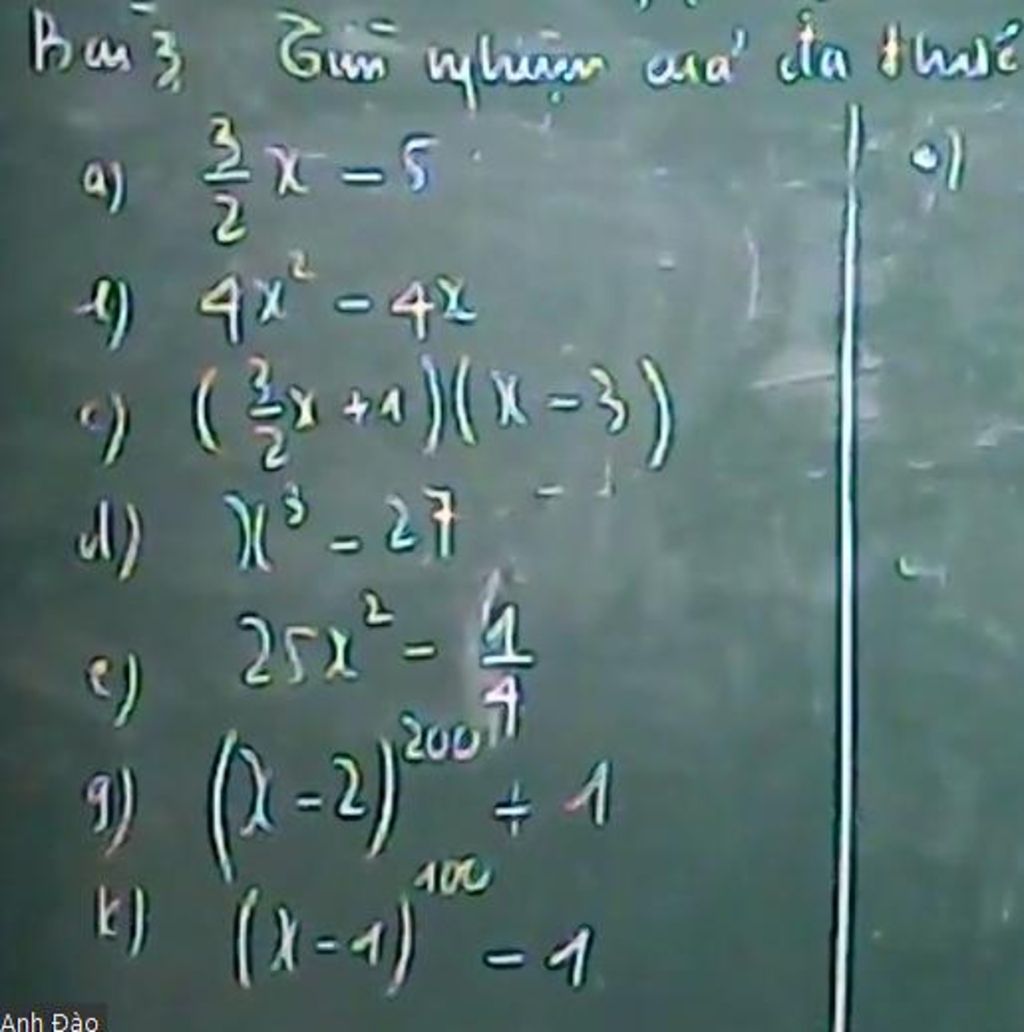 Bài 3 Tìm nghiệm của đa thức
a) 3/2 x - 5
b) 4x² - 4x
c) (3/2 x + 1)(x - 3)
d) x³ - 27
e) 25x² - 1/4
g) (x - 2)²⁰⁰ + 1
k) (x - 1)¹⁰⁰ - 1
Anh Đào